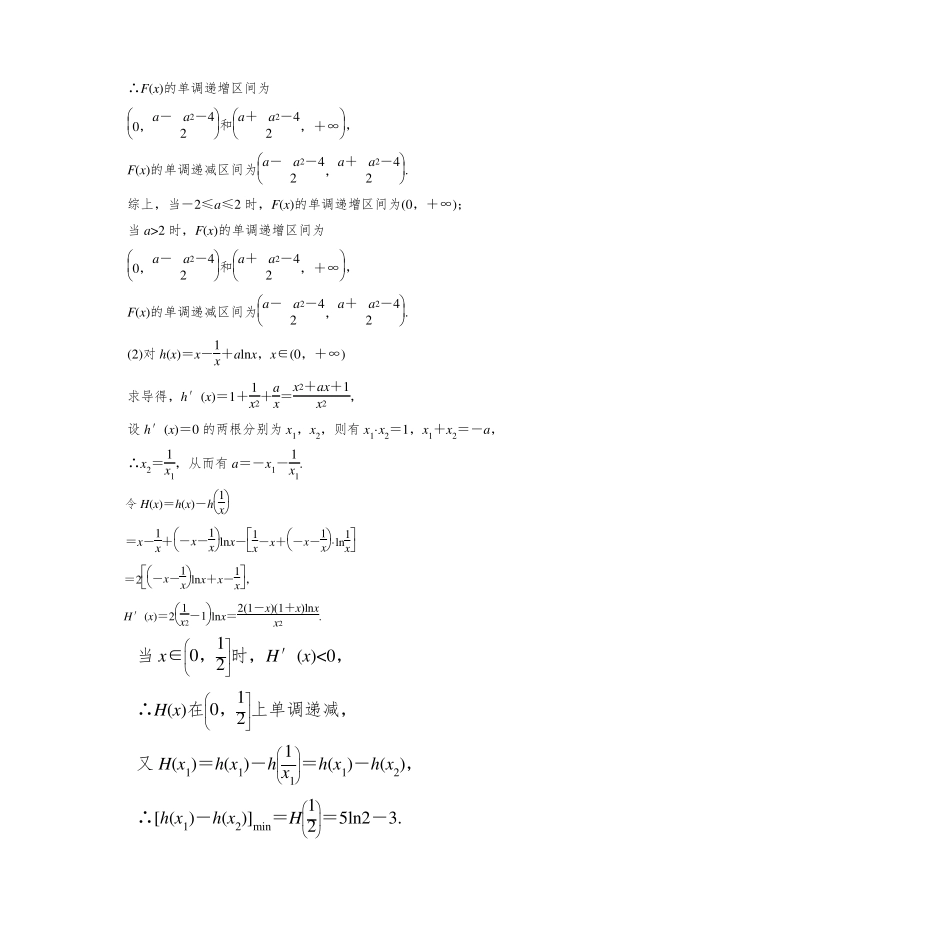 ∴F(x)的单调递增区间为
(0，(a－ a²－4)/2)和((a＋ a²－4)/2，＋∞)，
F(x)的单调递减区间为((a－ a²－4)/2，(a＋ a²－4)/2).
综上，当－2≤a≤2 时，F(x)的单调递增区间为(0，＋∞)；
当 a>2 时，F(x)的单调递增区间为
(0，(a－ a²－4)/2)和((a＋ a²－4)/2，＋∞)，
F(x)的单调递减区间为((a－ a²－4)/2，(a＋ a²－4)/2).
(2)对 h(x)＝x－1/x＋alnx，x∈(0，＋∞)
求导得，h′(x)＝1＋1/x²＋a/x＝(x²＋ax＋1)/x²，
设 h′(x)＝0 的两根分别为 x₁，x₂，则有 x₁·x₂＝1，x₁＋x₂＝－a，
∴x₂＝1/x₁，从而有 a＝－x₁－1/x₁.
令 H(x)＝h(x)－h(1/x)
＝x－1/x＋(－x－1/x)lnx－[1/x－x＋(－x－1/x)·ln1/x]
＝2[(－x－1/x)lnx＋x－1/x]，
H′(x)＝2(1/x²－1)lnx＝2(1－x)(1＋x)lnx/x².
当 x∈(0，1/2]时，H′(x)<0，
∴H(x)在(0，1/2]上单调递减，
又 H(x₁)＝h(x₁)－h(1/x₁)＝h(x₁)－h(x₂)，
∴[h(x₁)－h(x₂)]min＝H(1/2)＝5ln2－3.